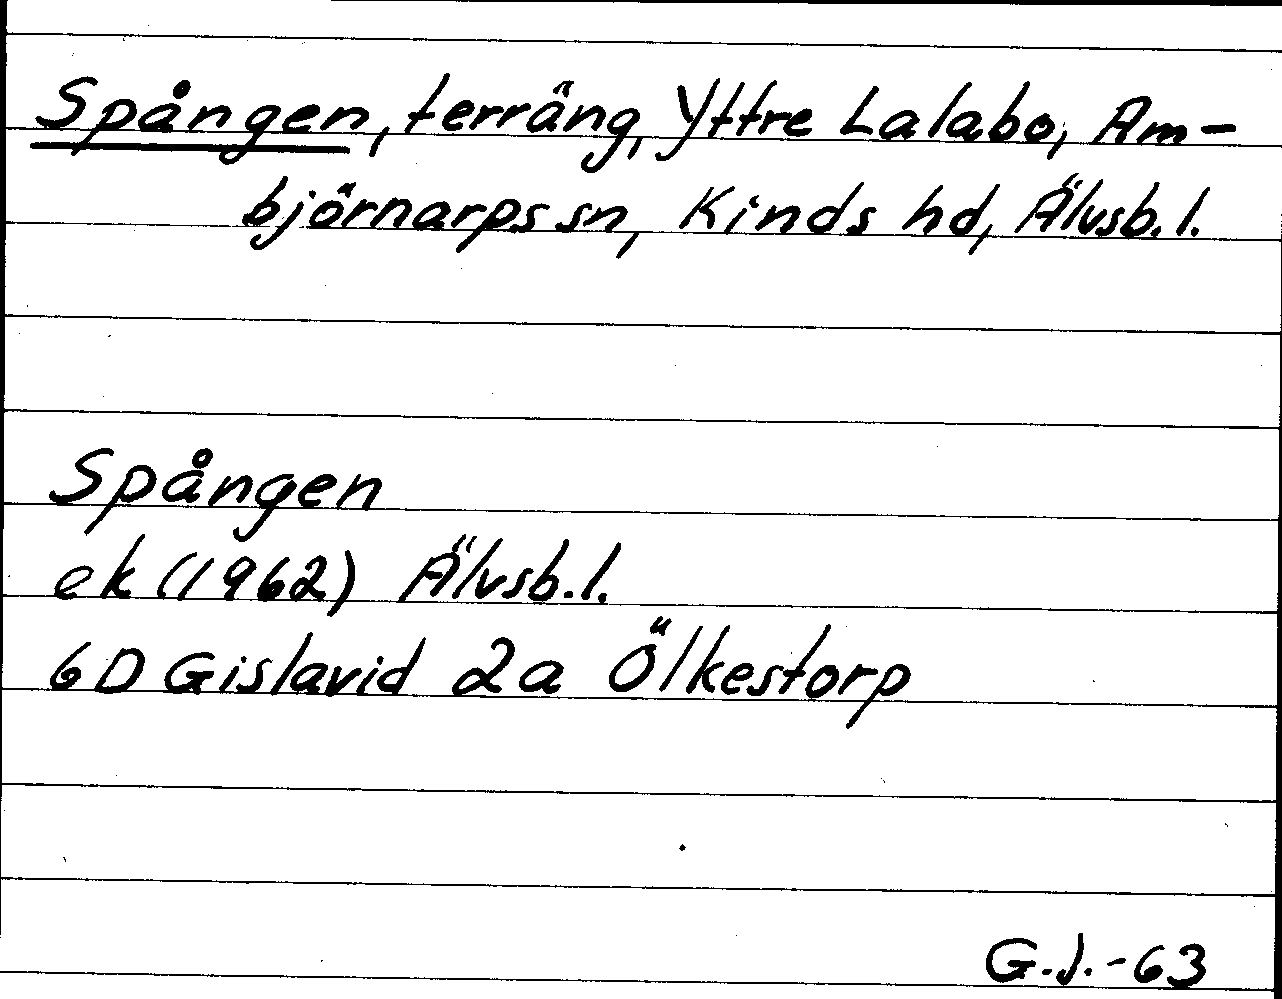 Spången, terräng, Yttre Lalabo, Am-
björnarps sn, Kinds hd, Älvsb. l.
Spången
ek (1962) Älvsb. l.
6D Gislavid 2a Ölkestorp
G.J.-63